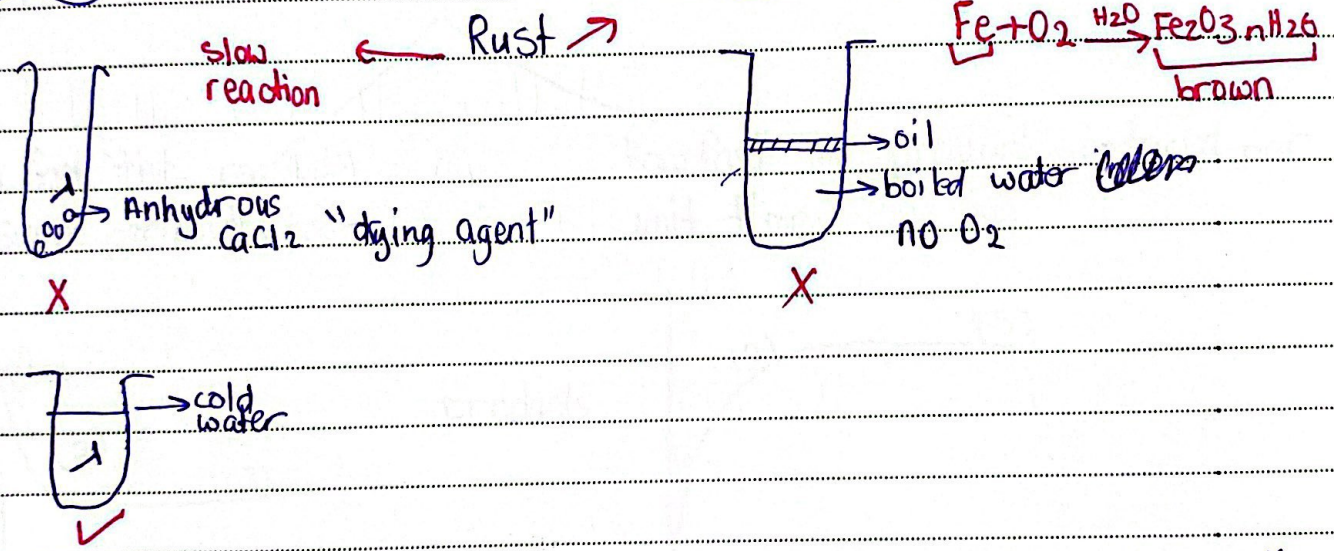 Rust
slow
reaction
Fe+O2 H2O Fe2O3.nH2O
brown
Anhydrous
CaCl2 "dying agent"
X
oil
boiled water
no O2
X
cold
water